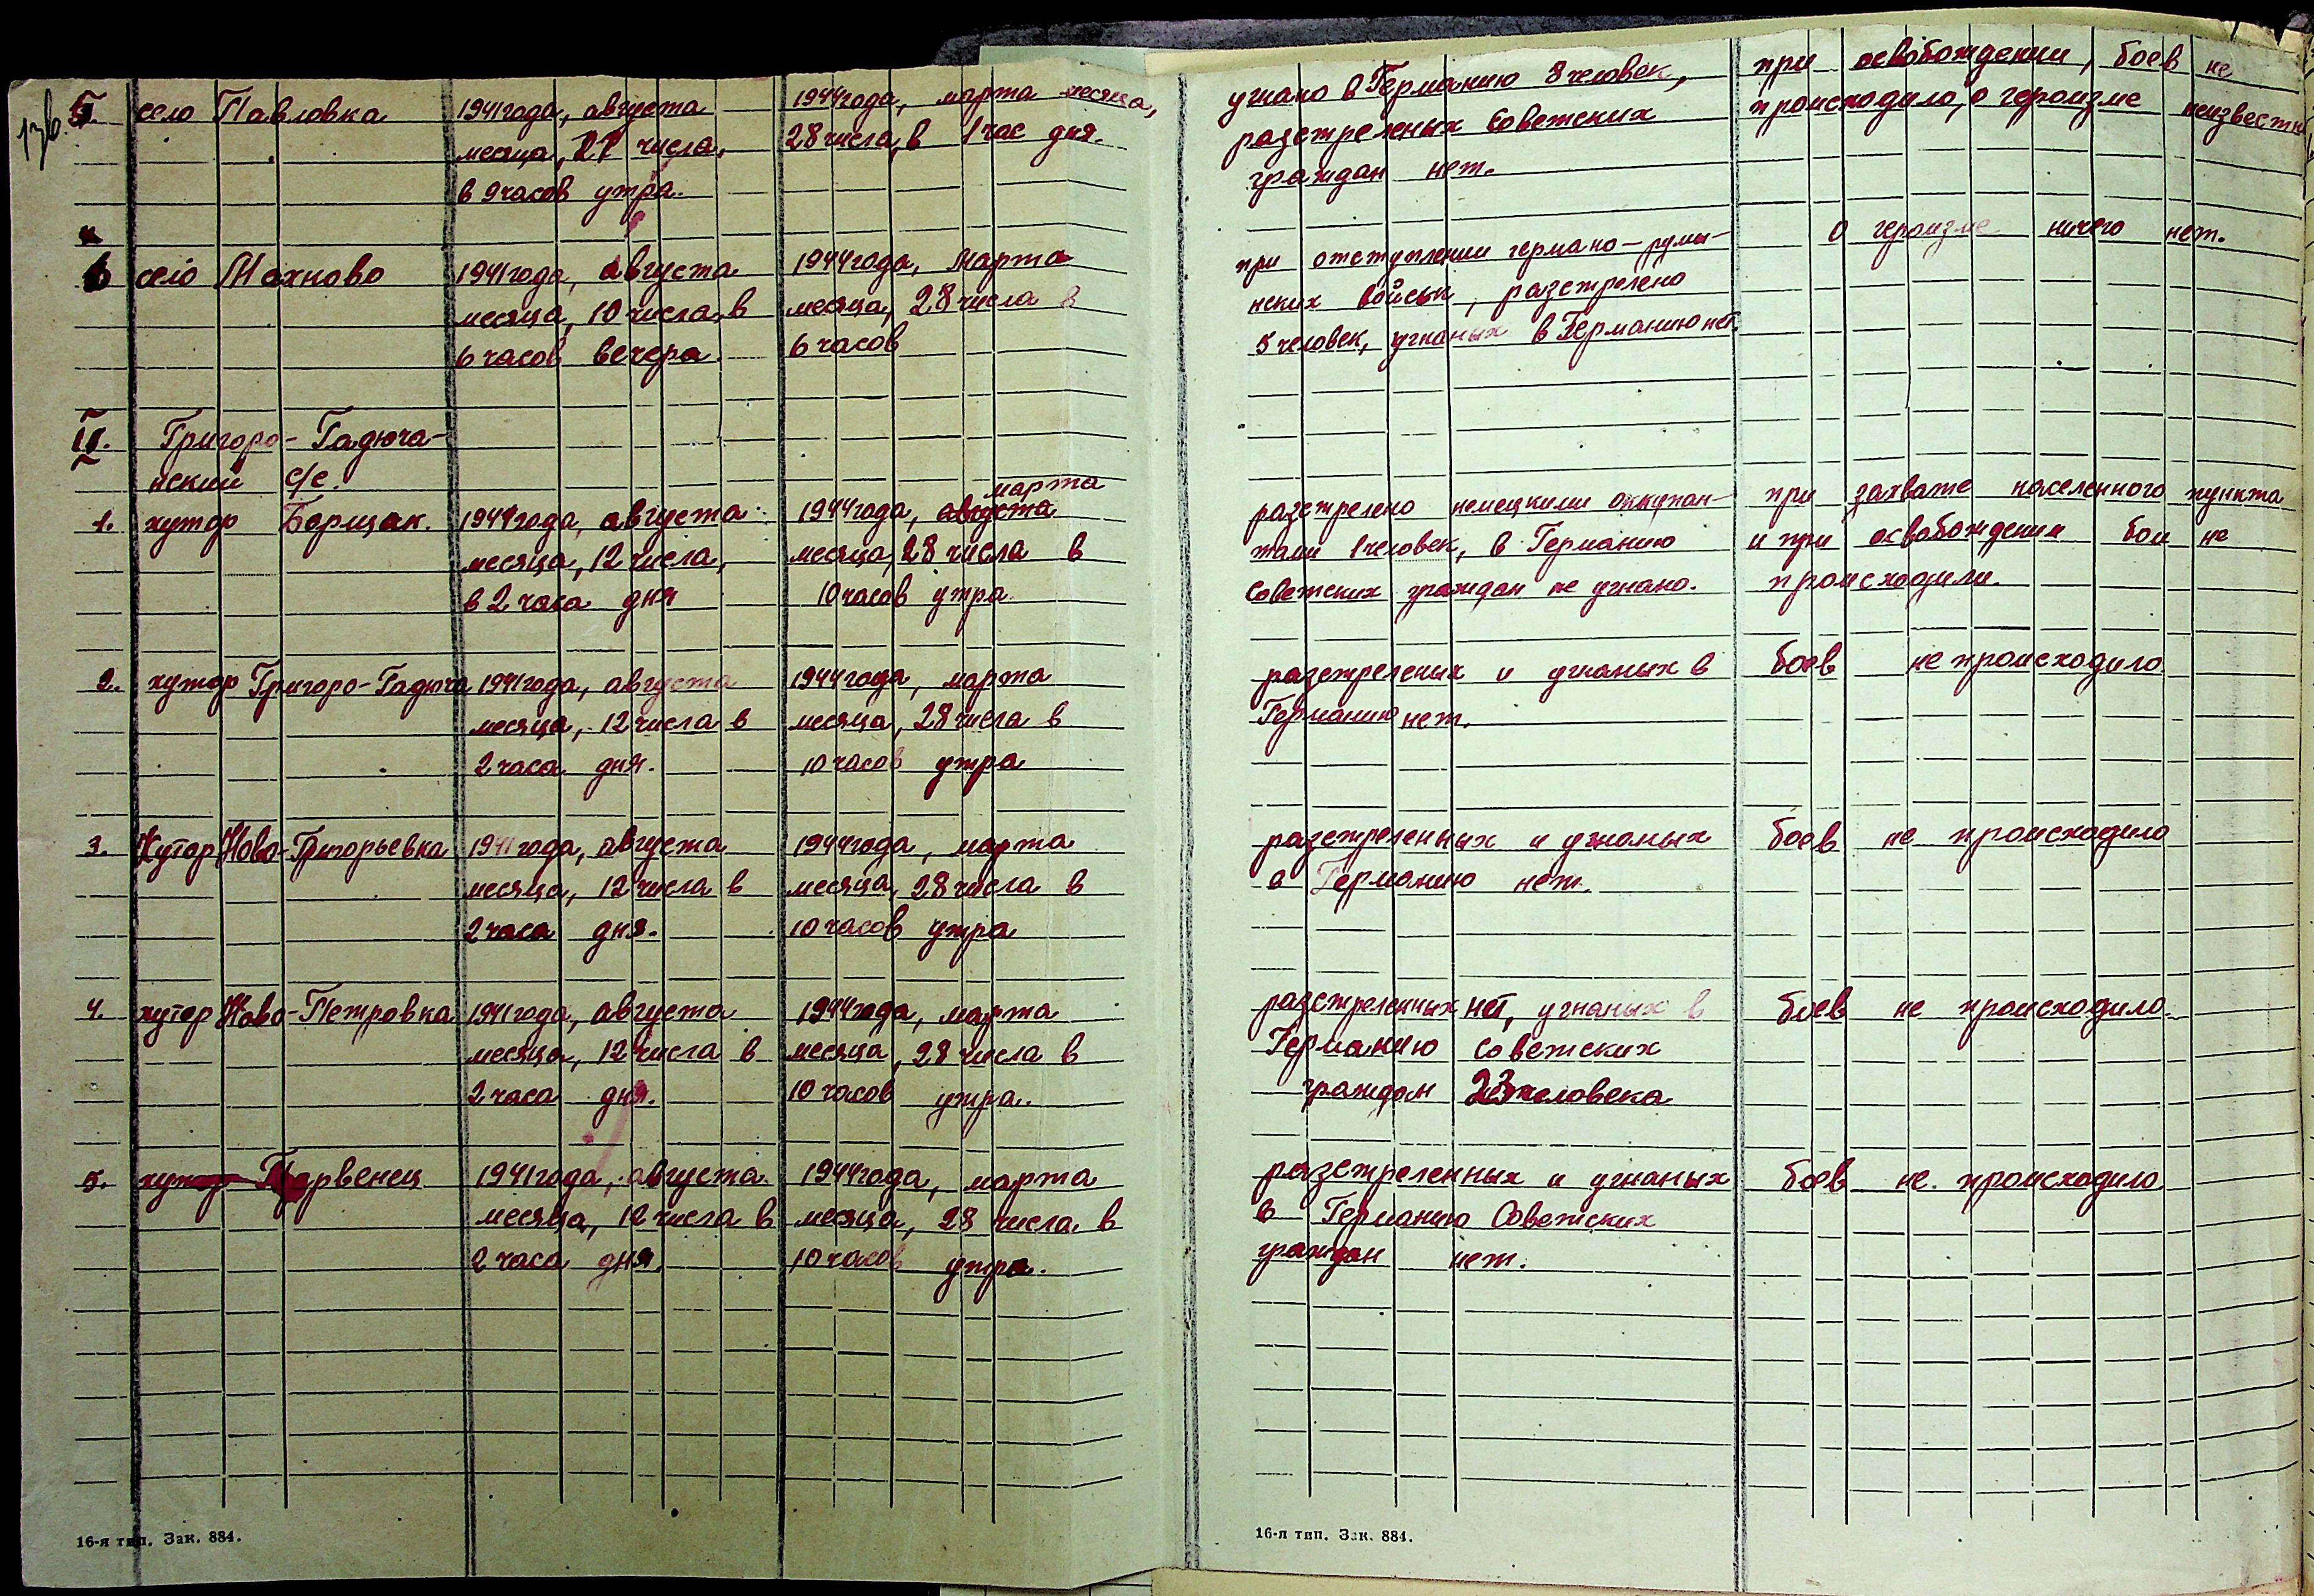 5 село Павловка 1941 года, августа 1944 года, марта месяца, угнано в Германию 8 человек, при освобождении, боев не
месяца, 27 числа, 28 числа, в 1 час дня. разстреленых Советских происходило, о героизме неизвестно
в 9 часов утра. граждан нет.
6 село Махново 1941 года, августа 1944 года, марта при отступлении германо-румы- О героизме ничего нет.
месяца, 10 числа, в месяца, 28 числа в нских войськ, разстрелено
6 часов вечера. 6 часов 5 человек, угнаных в Германию нет
Григоро-Гадюча-
нский с/с.
1. хутор Борщак. 1941 года, августа 1944 года, августа марта разстрелено немецкими оккупан- при захвате населенного пункта
месяца, 12 числа, месяца, 28 числа в тами 1 человек, в Германию и при освобождении бои не
в 2 часа дня 10 часов утра Советских граждан не угнано. происходили.
2. хутор Григоро-Гадюча 1941 года, августа 1944 года, марта разстреленых и угнаных в боев не происходило
месяца, 12 числа в месяца, 28 числа в Германию нет.
2 часа дня. 10 часов утра
3. Хутор Ново-Григорьевка 1941 года, августа 1944 года, марта разстреленных и угнаных боев не происходило
месяца, 12 числа в месяца, 28 числа в в Германию нет.
2 часа дня. 10 часов утра
4. хутор Ново-Петровка 1941 года, августа 1944 года, марта разстреленных нет, угнаных в боев не происходило.
месяца, 12 числа в месяца, 28 числа в Германию советских
2 часа дня. 10 часов утра. граждан 23 человека
5. хутор Первенец 1941 года, августа 1944 года, марта разстреленных и угнаных боев не происходило
месяца, 12 числа в месяца, 28 числа в в Германию Советских
2 часа дня. 10 часов утра. граждан нет.
16-я тип. Зак. 884. 16-я тип. Зак. 884.